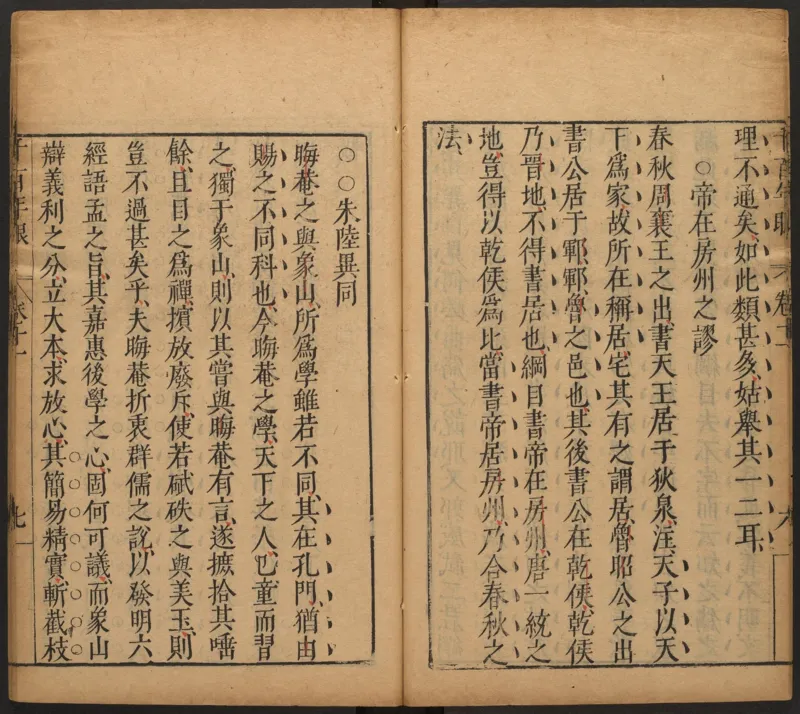 理不通矣如此類甚多姑舉其一二耳
○帝在房州之謬
春秋周襄王之出書天王居于狄泉注天子以天
下爲家故所在稱居宅其有之謂居魯昭公之出
書公居于鄆鄆魯之邑也其後書公在乾侯乾侯
乃晉地不得書居也綱目書帝在房州唐一統之
地豈得以乾侯爲比當書帝居房州乃合春秋之
法
○○朱陸異同
晦菴之與象山所爲學雖若不同其在孔門猶由
賜之不同科也今晦菴之學天下之人巳童而習
之獨于象山則以其嘗與晦菴有言遂摭拾其唾
餘且目之爲禪擯放廢斥使若碔砆之與美玉則
豈不過甚矣乎夫晦菴折衷群儒之說以發明六
經語孟之旨其嘉惠後學之心固何可議而象山
辯義利之分立大本求放心其簡易精實斬截枝
千百年眼 卷十一 七